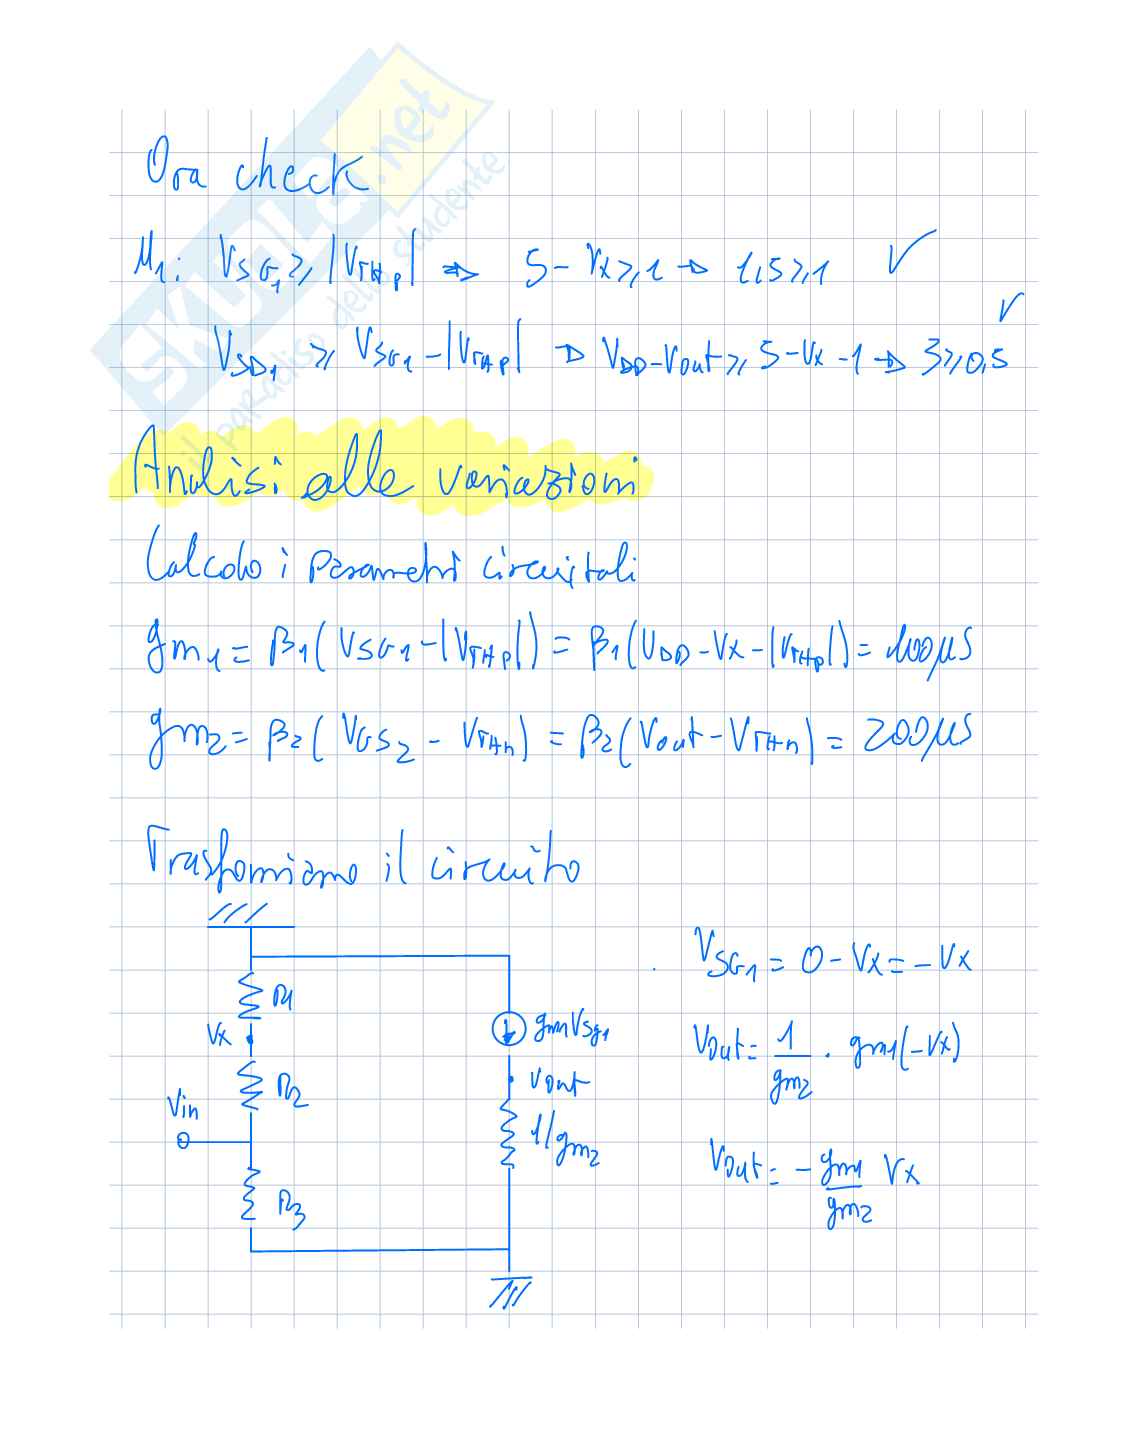 Ora check
M1: VSG1 ⩾ |VTHp| ⇒ 5 - Vx ⩾ 1 → 1,5 ⩾ 1 ✓
VSD1 ⩾ VSG1 - |VTHp| → VDD - Vout ⩾ 5 - Vx - 1 → 3 ⩾ 0,5 ✓
Analisi alle variazioni
Calcolo i parametri circuitali
gm1 = β1(VSG1 - |VTHp|) = β1(VDD - Vx - |VTHp|) = 400μS
gm2 = β2(VGS2 - VTHn) = β2(Vout - VTHn) = 200μS
Trasformiamo il circuito
R1
Vx
R2
Vin
R3
gm1Vsg1
Vout
1/gm2
VSG1 = 0 - Vx = -Vx
Vout = 1/gm2 · gm1(-Vx)
Vout = - gm1/gm2 Vx
SKUOLA.net
il paradiso dello studente